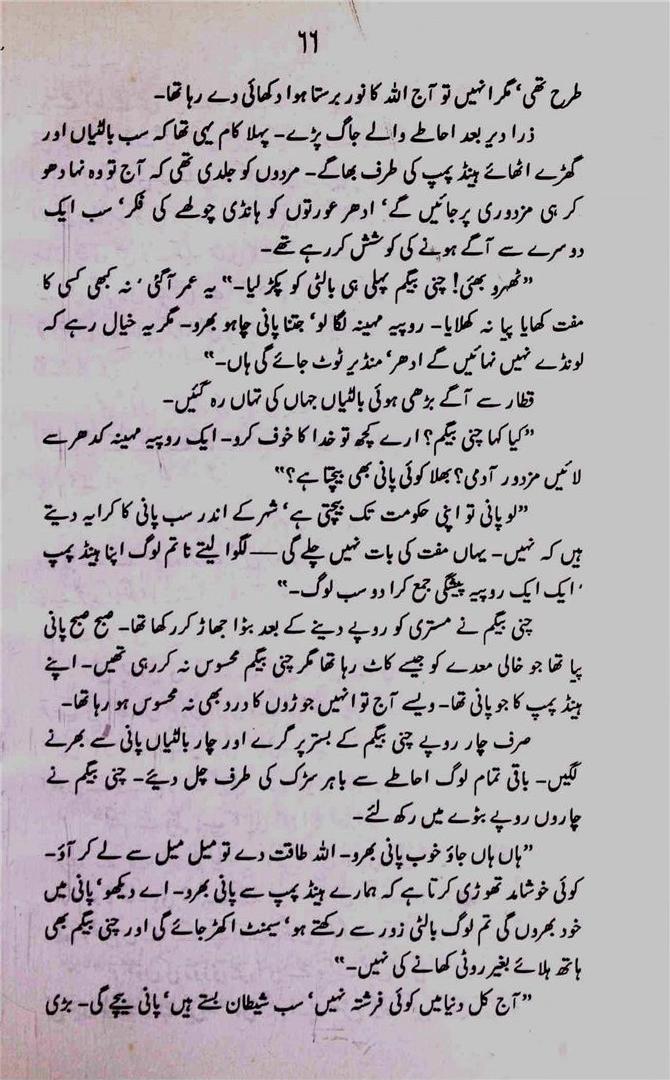 ٦٦
طرح تھی، مگر انہیں تو آج اللہ کا نور برستا ہوا دکھائی دے رہا تھا۔
ذرا دیر بعد احاطے والے جاگ پڑے۔ پہلا کام یہی تھا کہ سب بالٹیاں اور
گھڑے اٹھائے ہینڈ پمپ کی طرف بھاگے۔ مردوں کو جلدی تھی کہ آج تو وہ نہا دھو
کر ہی مزدوری پر جائیں گے، ادھر عورتوں کو ہانڈی چولھے کی فکر، سب ایک
دوسرے سے آگے ہونے کی کوشش کر رہے تھے۔
”ٹھہرو بھئی! چنی بیگم پہلی ہی بالٹی کو پکڑ لیا۔“ یہ عمر آگئی، نہ کبھی کسی کا
مفت کھایا پیا نہ کھلایا۔ روپیہ مہینہ لگا لو، جتنا پانی چاہو بھرو۔ مگر یہ خیال رہے کہ
لونڈے نہیں نہائیں گے ادھر، منڈیر ٹوٹ جائے گی ہاں۔“
قطار سے آگے بڑھی ہوئی بالٹیاں جہاں کی تہاں رہ گئیں۔
”کیا کہا چنی بیگم؟ ارے کچھ تو خدا کا خوف کرو۔ ایک روپیہ مہینہ کدھر سے
لائیں مزدور آدمی؟ بھلا کوئی پانی بھی بیچتا ہے؟“
”لو پانی تو اپنی حکومت تک بیچتی ہے، شہر کے اندر سب پانی کا کرایہ دیتے
ہیں کہ نہیں۔ یہاں مفت کی بات نہیں چلے گی —— لگوا لیتے نا تم لوگ اپنا ہینڈ پمپ
، ایک ایک روپیہ پیشگی جمع کرا دو سب لوگ۔“
چنی بیگم نے مستری کو روپے دینے کے بعد بٹوا جھاڑ کر رکھا تھا۔ صبح صبح پانی
پیا تھا جو خالی معدے کو جیسے کاٹ رہا تھا مگر چنی بیگم محسوس نہ کر رہی تھیں۔ اپنے
ہینڈ پمپ کا جو پانی تھا۔ ویسے آج تو انہیں جوڑوں کا درد بھی نہ محسوس ہو رہا تھا۔
صرف چار روپے چنی بیگم کے بستر پر گرے اور چار بالٹیاں پانی سے بھرنے
لگیں۔ باقی تمام لوگ احاطے سے باہر سڑک کی طرف چل دیئے۔ چنی بیگم نے
چاروں روپے بٹوے میں رکھ لئے۔
”ہاں ہاں جاؤ خوب پانی بھرو۔ اللہ طاقت دے تو میل میل سے لے کر آؤ۔
کوئی خوشامد تھوڑی کرتا ہے کہ ہمارے ہینڈ پمپ سے پانی بھرو۔ اے دیکھو، پانی میں
خود بھروں گی تم لوگ بالٹی زور سے رکھتے ہو، سیمنٹ اکھڑ جائے گی اور چنی بیگم بھی
ہاتھ ہلائے بغیر روٹی کھانے کی نہیں۔“
”آج کل دنیا میں کوئی فرشتہ نہیں، سب شیطان بستے ہیں، پانی بیچے گی۔ بڑی